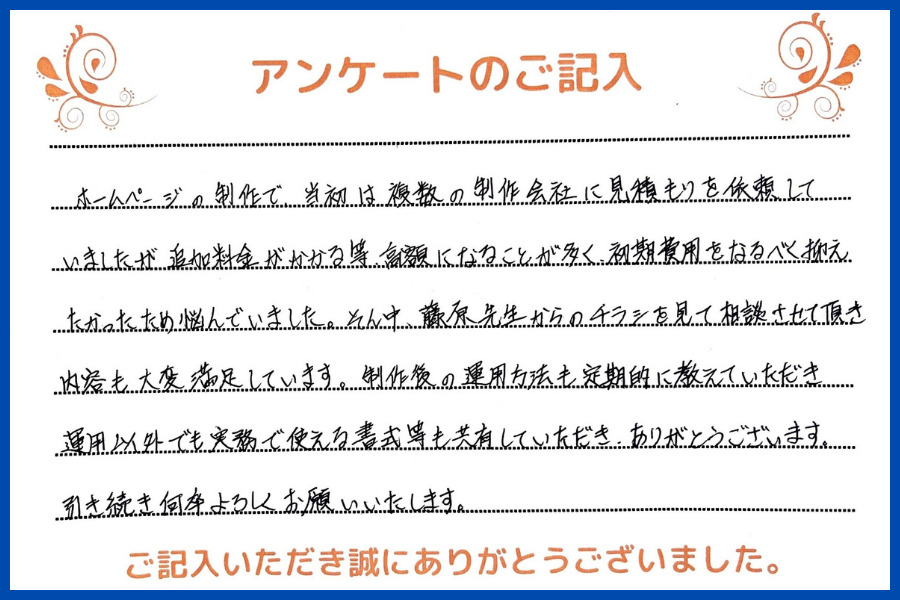 アンケートのご記入
ホームページの制作で、当初は複数の制作会社に見積もりを依頼して
いましたが追加料金がかかる等、高額になることが多く、初期費用をなるべく抑え
たかったため悩んでいました。そん中、藤原先生からのチラシを見て相談させて頂き
内容も大変満足しています。制作後の運用方法も定期的に教えていただき
運用以外でも実務で使える書式等も共有していただき、ありがとうございます。
引き続き何卒よろしくお願いいたします。
ご記入いただき誠にありがとうございました。